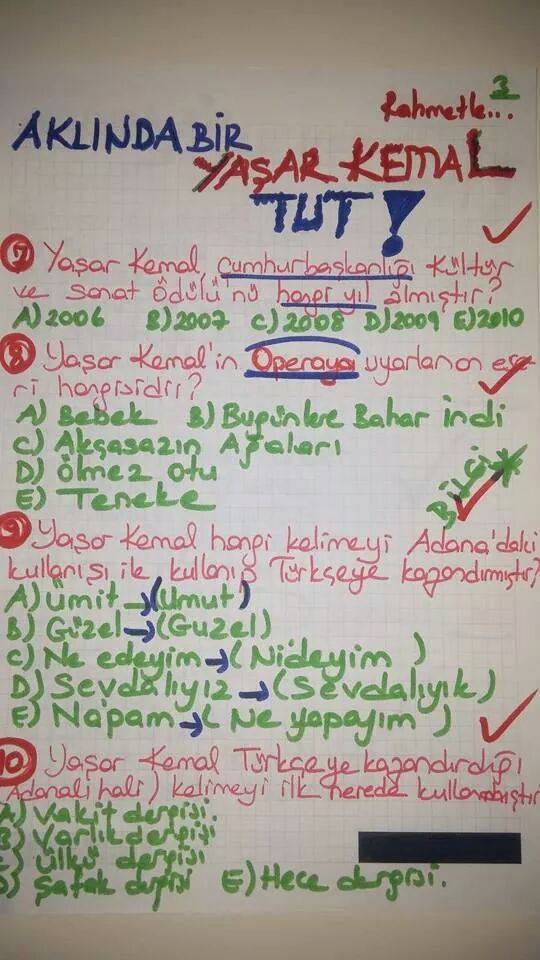 3
Rahmetle...
AKLINDA BİR
YAŞAR KEMAL
TUT!
7 Yaşar Kemal, Cumhurbaşkanlığı Kültür
ve sanat ödülü'nü hangi yıl almıştır?
A) 2006 B) 2007 C) 2008 D) 2009 E) 2010
8 Yaşar Kemal'in Operaya uyarlanan ese
ri hangisidir?
A) Bebek B) Bugünlere Bahar İndi
C) Akçasazın Ağaları
D) Ölmez otu
E) Teneke
Bilgi
9 Yaşar Kemal hangi kelimeyi Adana'daki
kullanışı ile kullanıp Türkçeye kazandırmıştır?
A) Ümit → (Umut)
B) Güzel → (Guzel)
C) Ne edeyim → (Nideyim)
D) Sevdalıyız → (Sevdalıyık)
E) Napam → (Ne yapayım)
10 Yaşar Kemal Türkçeye kazandırdığı
Adanali hali) kelimeyi ilk nerede kullanmıştır
A) Vakit dergisi.
B) Varlık dergisi
C) Ülkü dergisi
D) Şafak dergisi E) Hece dergisi.